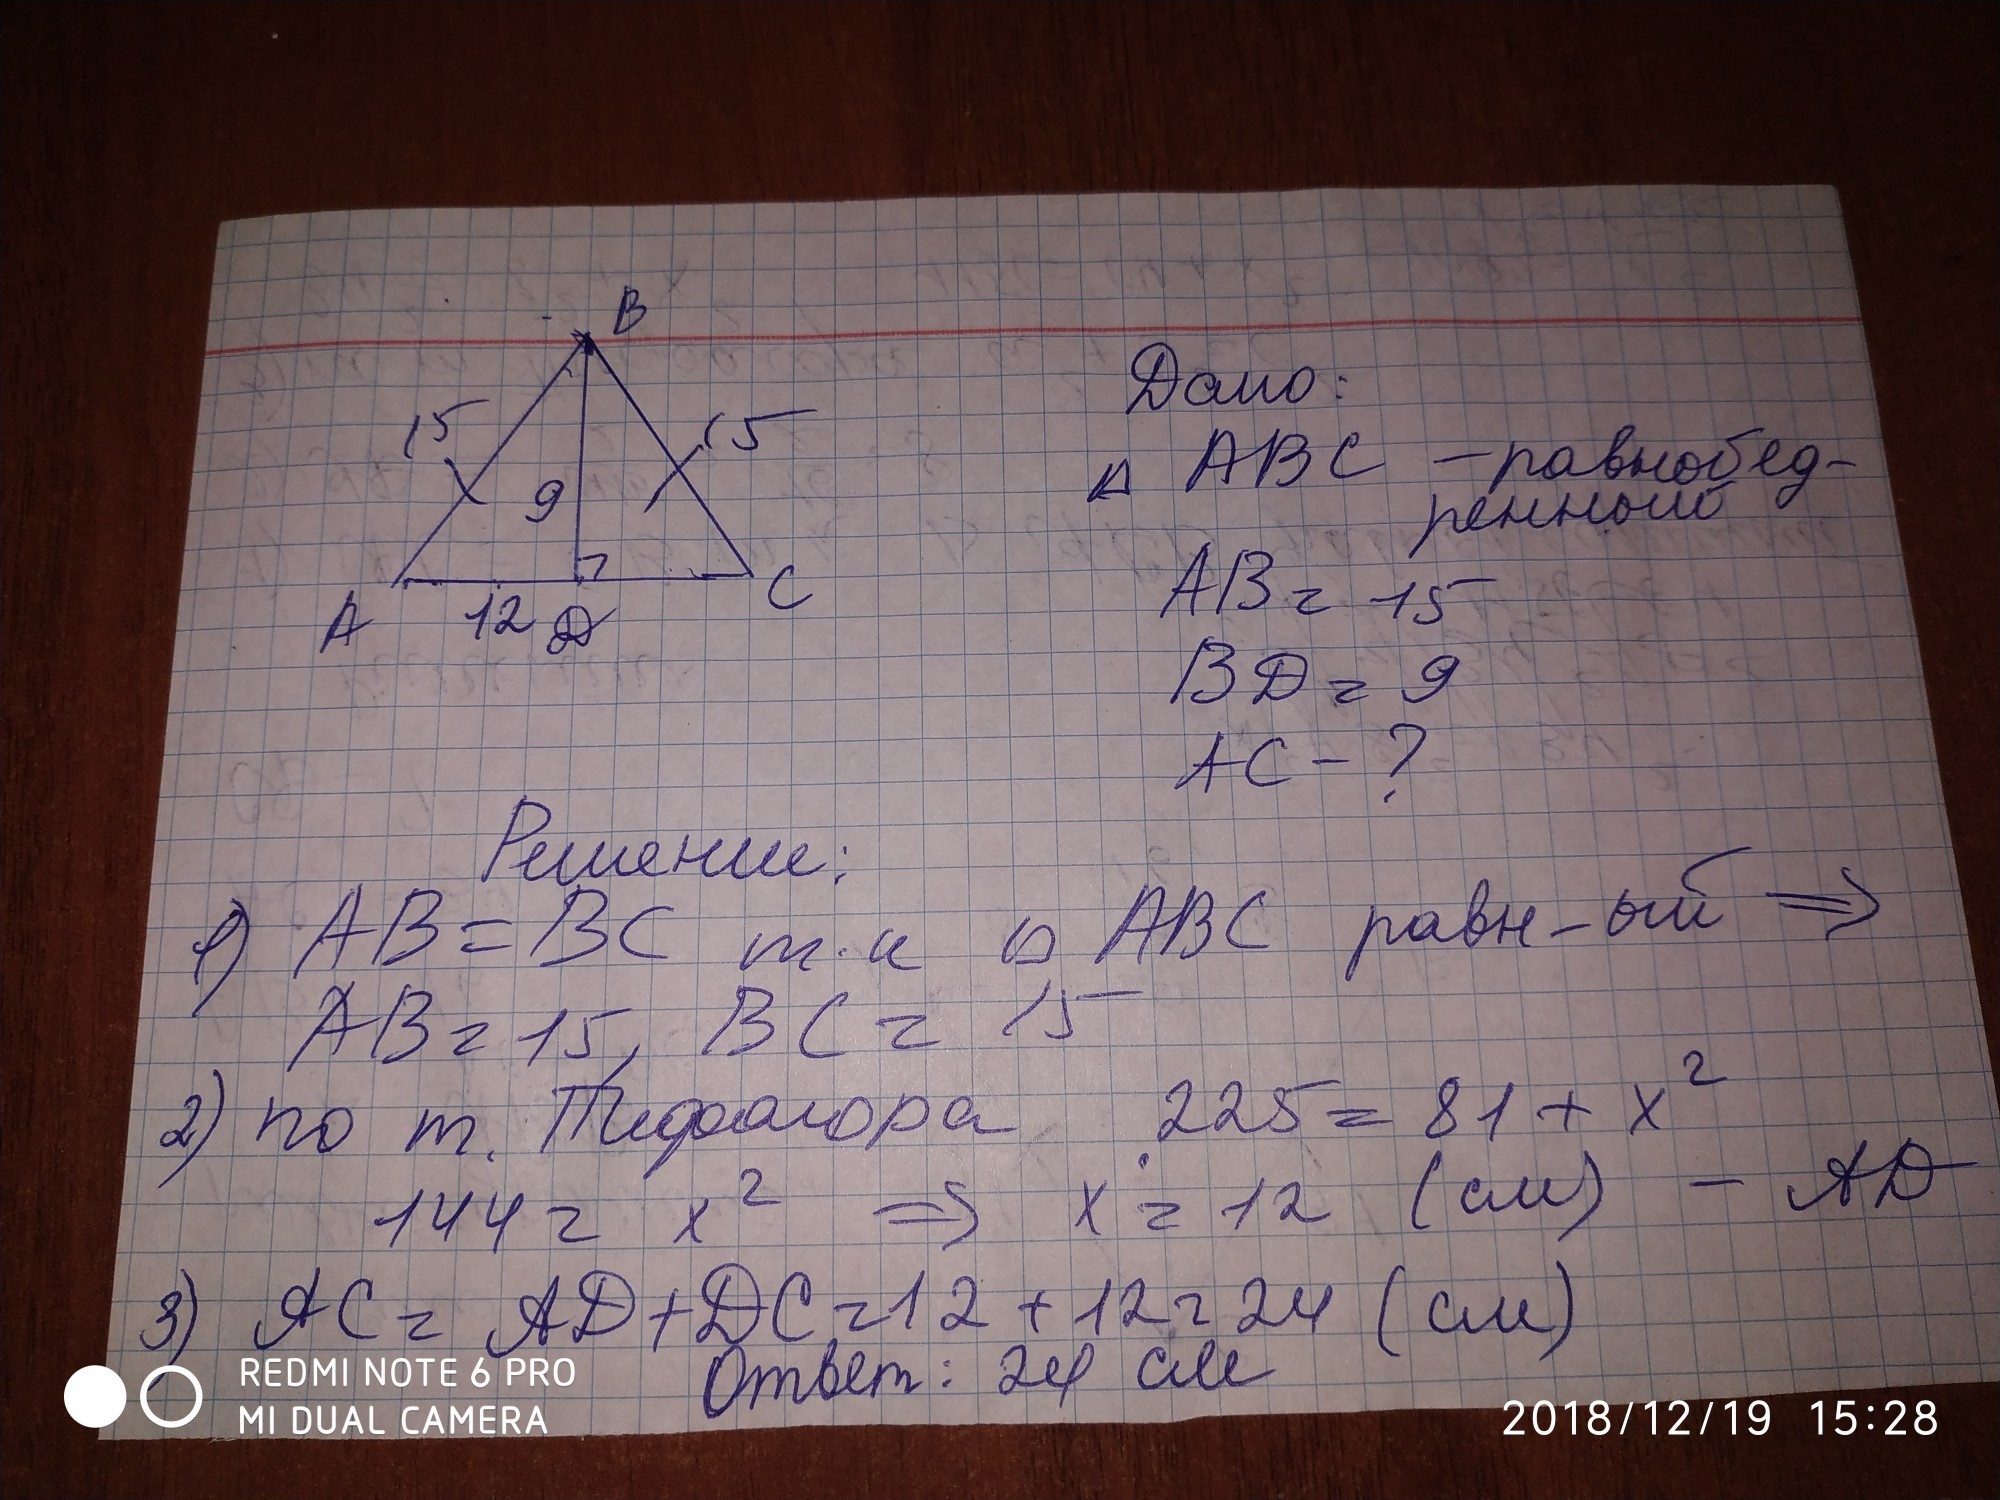 B
15
15
9
A
12
D
C
Дано:
△ ABC - равнобед-
ренный
AB = 15
BD = 9
AC - ?
Решение:
1) AB = BC т.к △ ABC равн-ый ⇒
AB = 15, BC = 15
2) по т. Пифагора 225 = 81 + x²
144 = x² ⇒ x = 12 (см) - AD
3) AC = AD + DC = 12 + 12 = 24 (см)
Ответ: 24 см
REDMI NOTE 6 PRO
MI DUAL CAMERA
2018/12/19 15:28